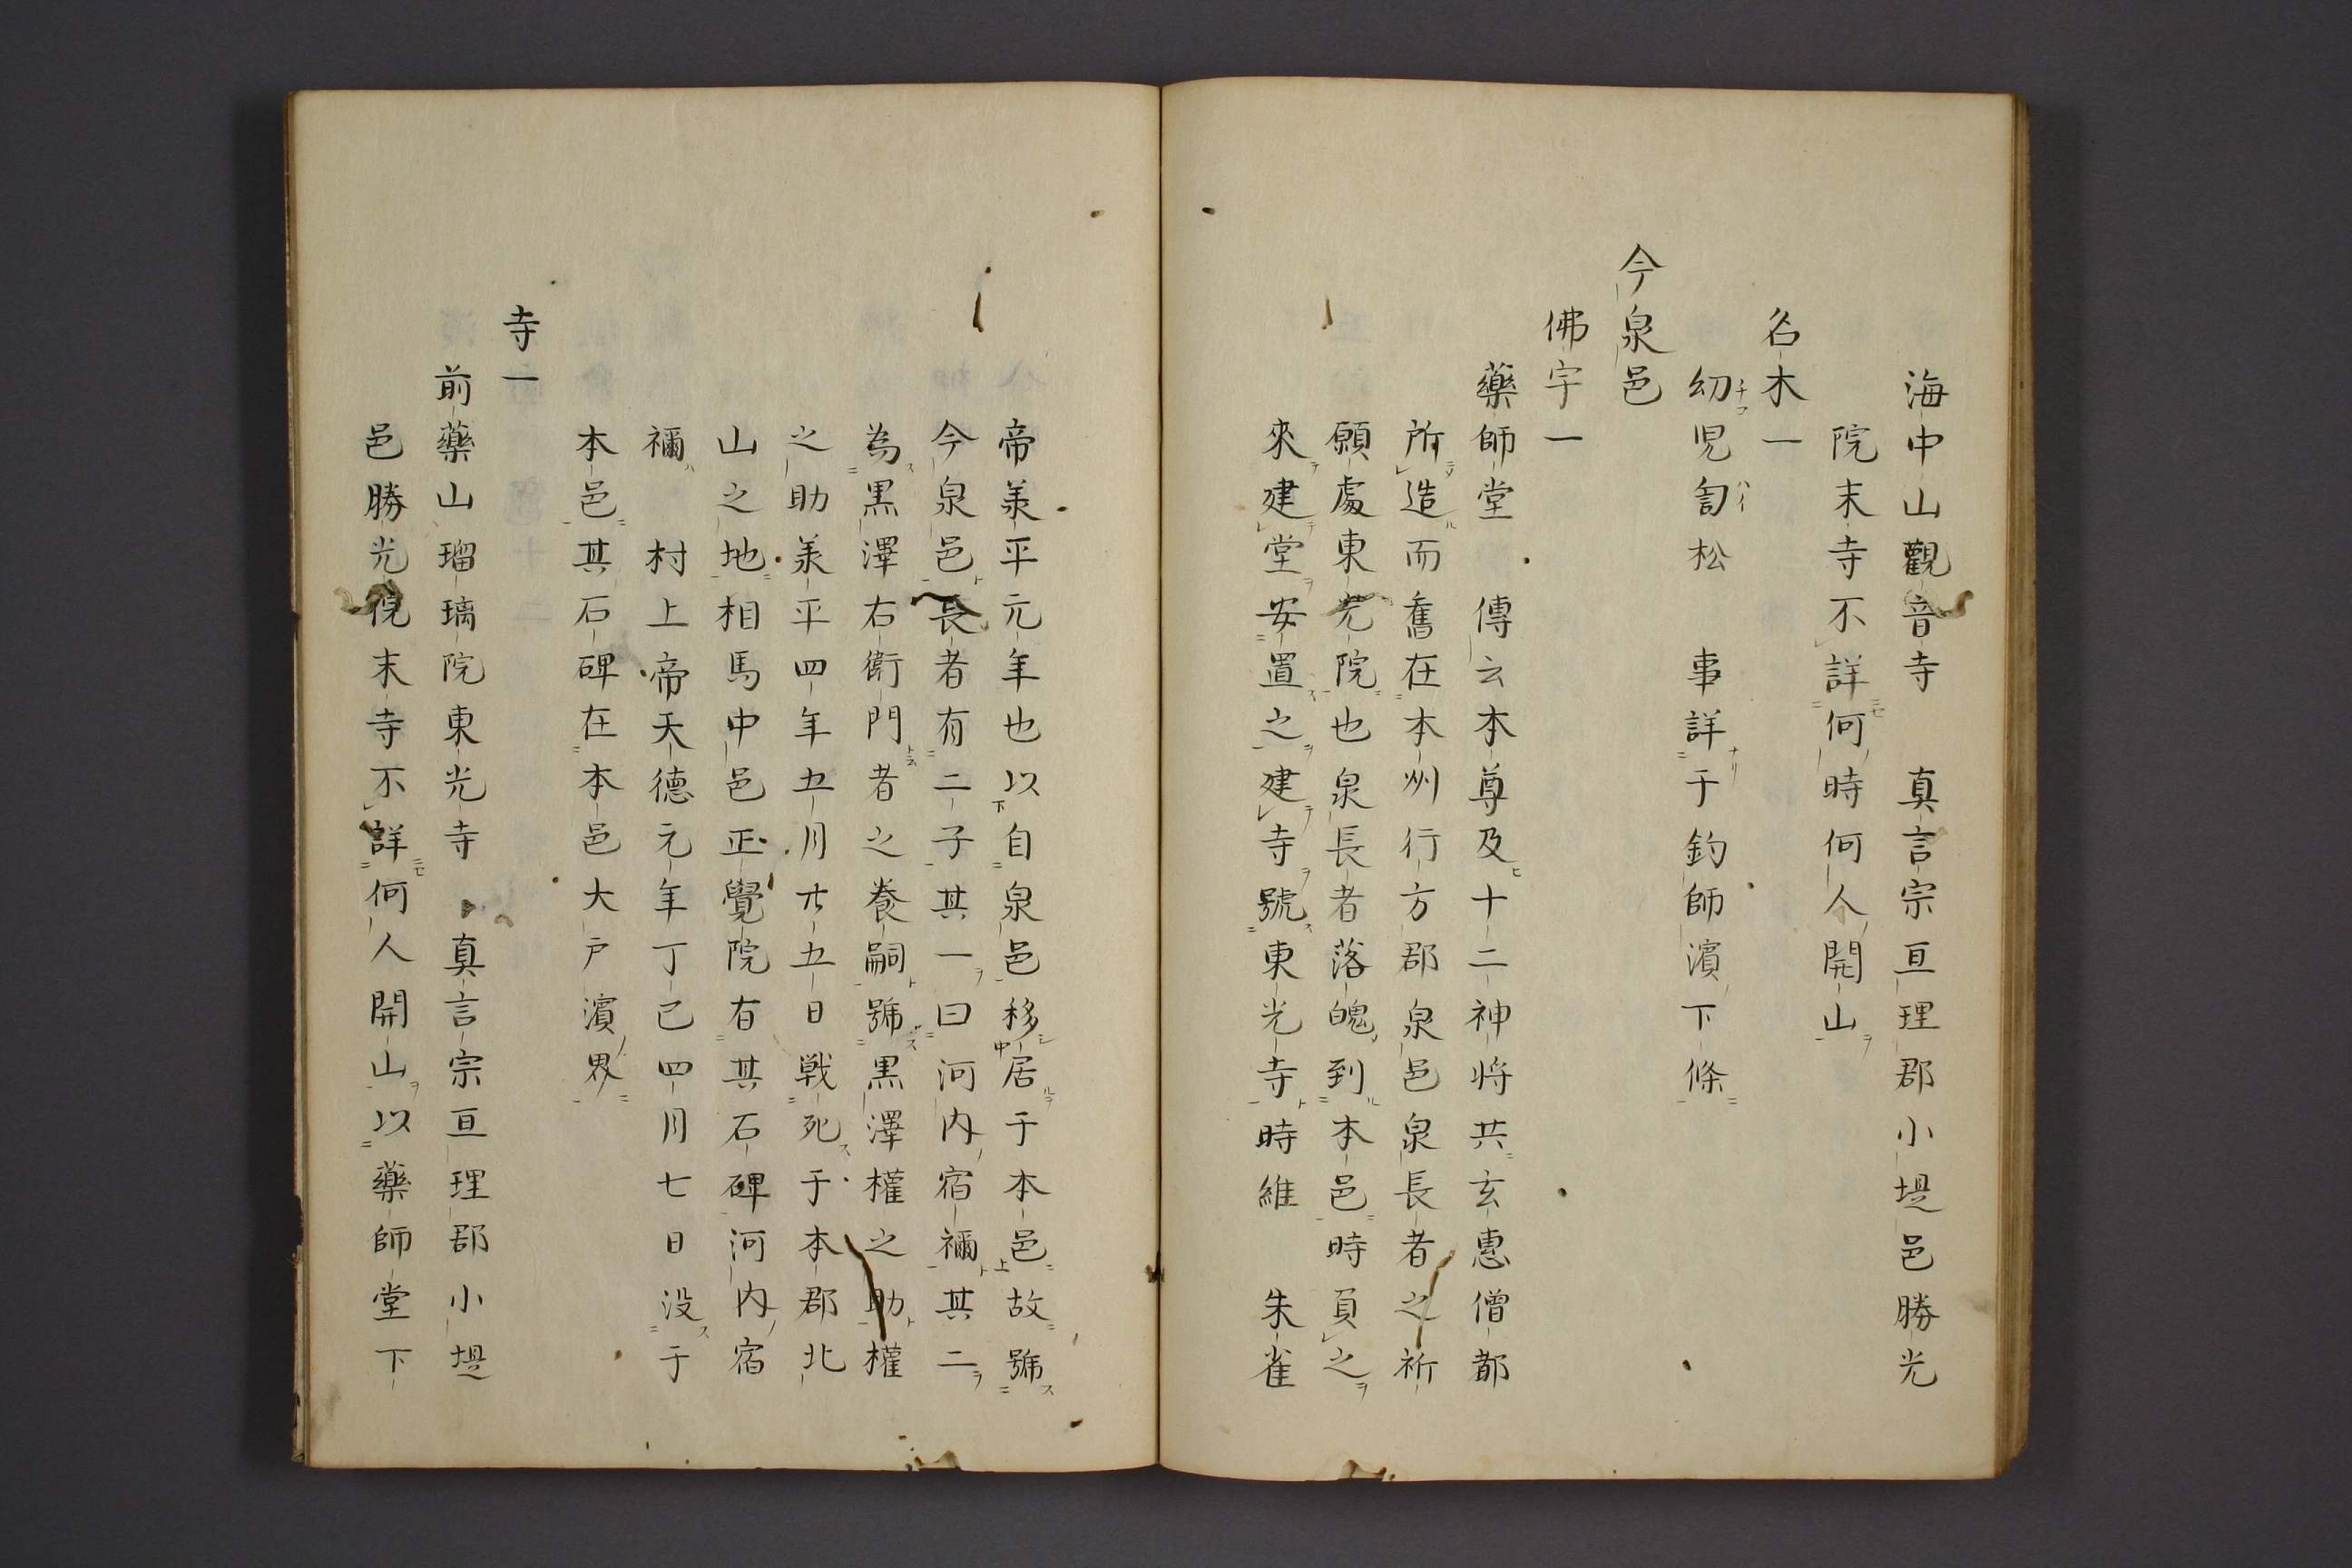 海中山觀音寺　真言宗亘理郡小堤邑勝光
院末寺不詳何時何人開山
名木一
幼児匐松　事詳于釣師濱下條
今泉邑
佛宇一
藥師堂　傳云本尊及十二神将共玄惠僧都
所造而舊在本州行方郡泉邑泉長者之祈
願處東光院也泉長者落魄到本邑時負之
來建堂安置之建寺號東光寺時維　朱雀
帝羕平元年也以自泉邑移居于本邑故號
今泉邑長者有二子其一曰河内宿禰其二
為黒澤右衛門者之養嗣號黒澤權之助權
之助羕平四年五月廿五日戦死于本郡北
山之地相馬中邑正覺院有其石碑河内宿
禰　村上帝天德元年丁巳四月七日没于
本邑其石碑在本邑大戸濱界
寺一
前藥山瑠璃院東光寺　真言宗亘理郡小堤
邑勝光院末寺不詳何人開山以藥師堂下